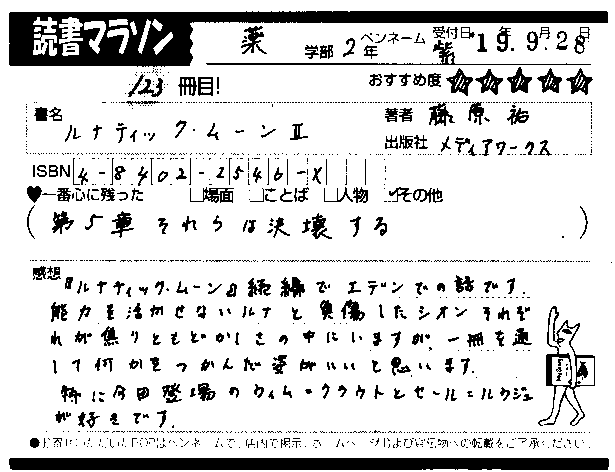 読書マラソン
薬 学部 2年 ペンネーム 紫 受付日 '19年9月28日
123 冊目! おすすめ度 ★★★★★
書名 ルナティック・ムーンⅡ
著者 藤原祐
出版社 メディアワークス
ISBN 4-8402-2546-X
♥一番心に残った □場面 □ことば □人物 ☑その他
(第5章 それらは決壊する)
感想
『ルナティック・ムーン』続編でエデンでの話です.
能力を活かせないルナと負傷したシオンそれぞ
れが焦りともどかしさの中にいますが、一冊を通
して何かをつかんだ姿がいいと思います.
特に今回登場のウィム=クラウトとセール=ルウジェ
が好きです.
●お寄せいただいたPOPはペンネームで、店内で掲示、ホームページおよび宣伝物への転載をご了承ください。